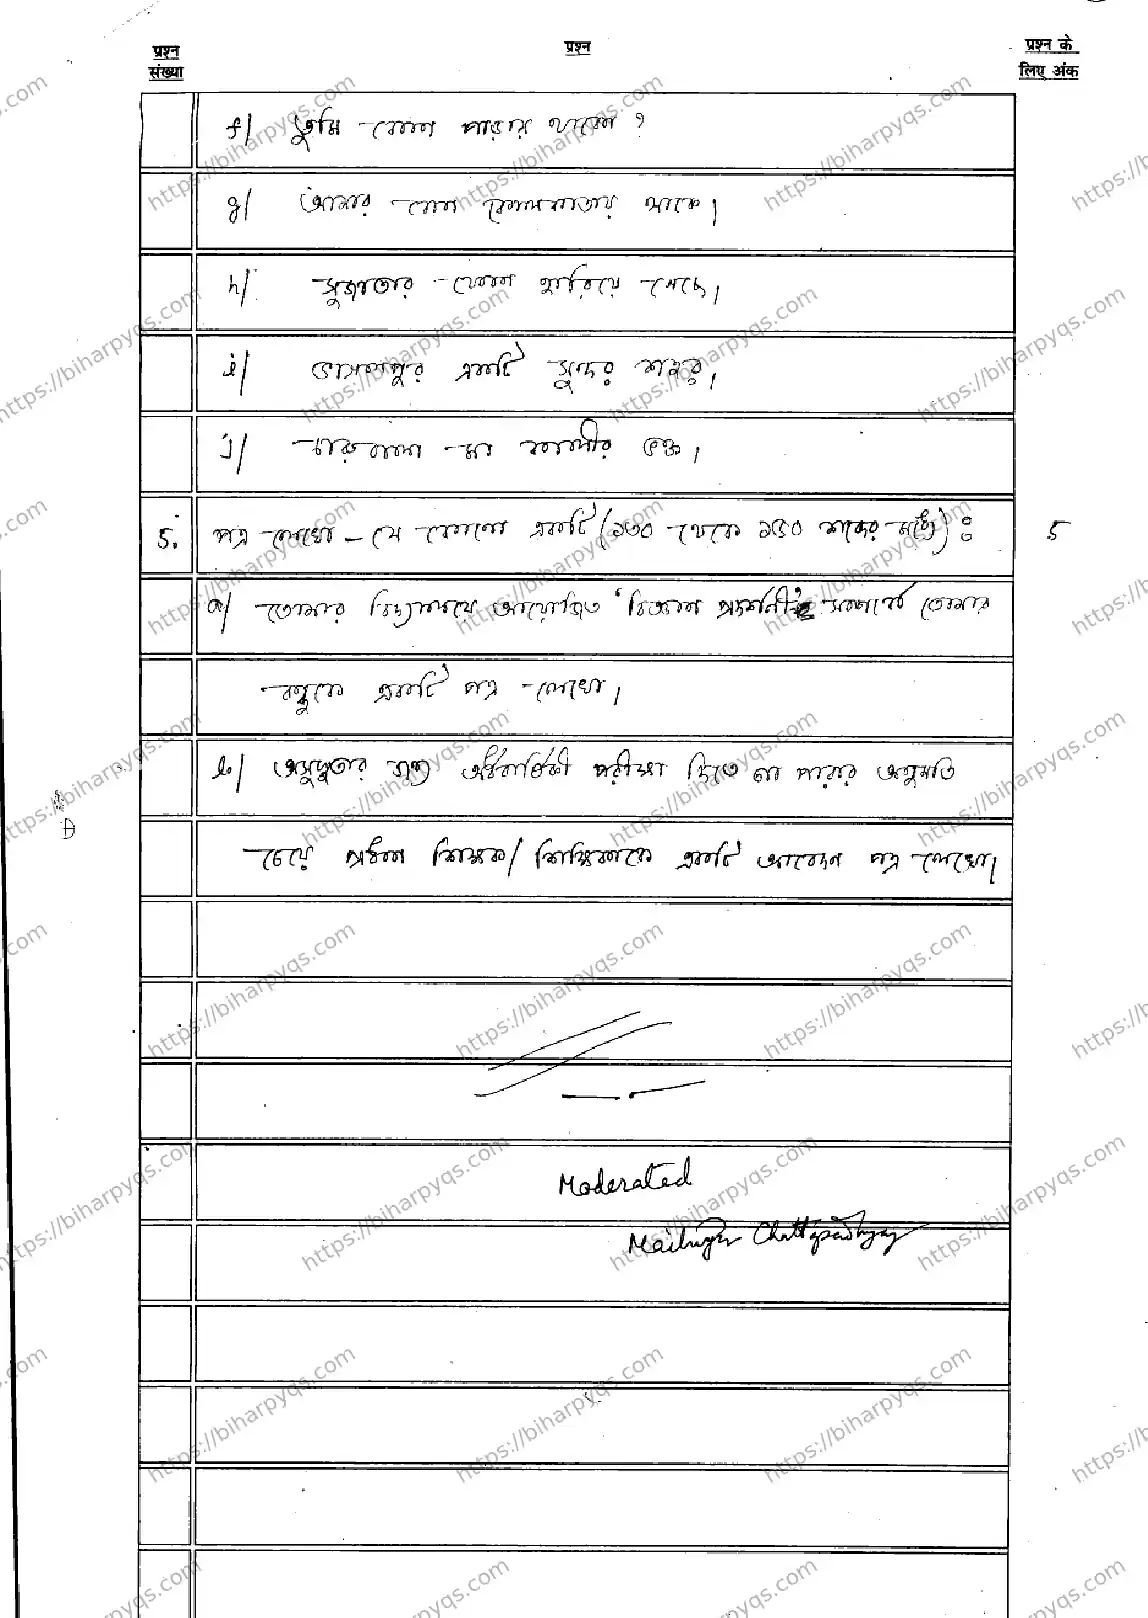 प्रश्न संख्या प्रश्न प्रश्न के लिए अंक
f) তুমি কোন পাড়ায় থাকো ?
g) আমার বোন কোলকাতায় থাকে।
h) সুজাতার ফোন হারিয়ে গেছে।
i) ভাগলপুর একটি সুন্দর শহর।
j) চারুবালা মা কালীর ভক্ত।
5. পত্র লেখো – যে কোনো একটি (১৩০ থেকে ১৫০ শব্দের মধ্যে) : 5
a) তোমার বিদ্যালয়ে আয়োজিত 'বিজ্ঞান প্রদর্শনী' সম্পর্কে তোমার
বন্ধুকে একটি পত্র লেখো।
b) অসুস্থতার জন্য অর্ধবার্ষিকী পরীক্ষা দিতে না পারার অনুমতি
চেয়ে প্রধান শিক্ষক/শিক্ষিকাকে একটি আবেদন পত্র লেখো।
Moderated
Chattopadhyay
https://biharpyqs.com